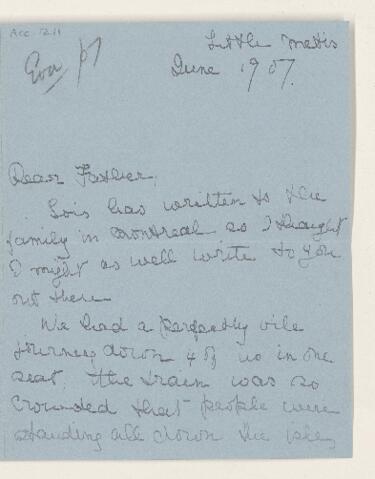 Acc. 1211
Eva /07
Little Metis
June 1907.
Dear Father,
Lois has written to the
family in Montreal so I thought
I might as well write to you
out there
We had a perfectly vile
journey down 4 of us in one
seat, the train was so
crowded that people were
standing all down the isle,